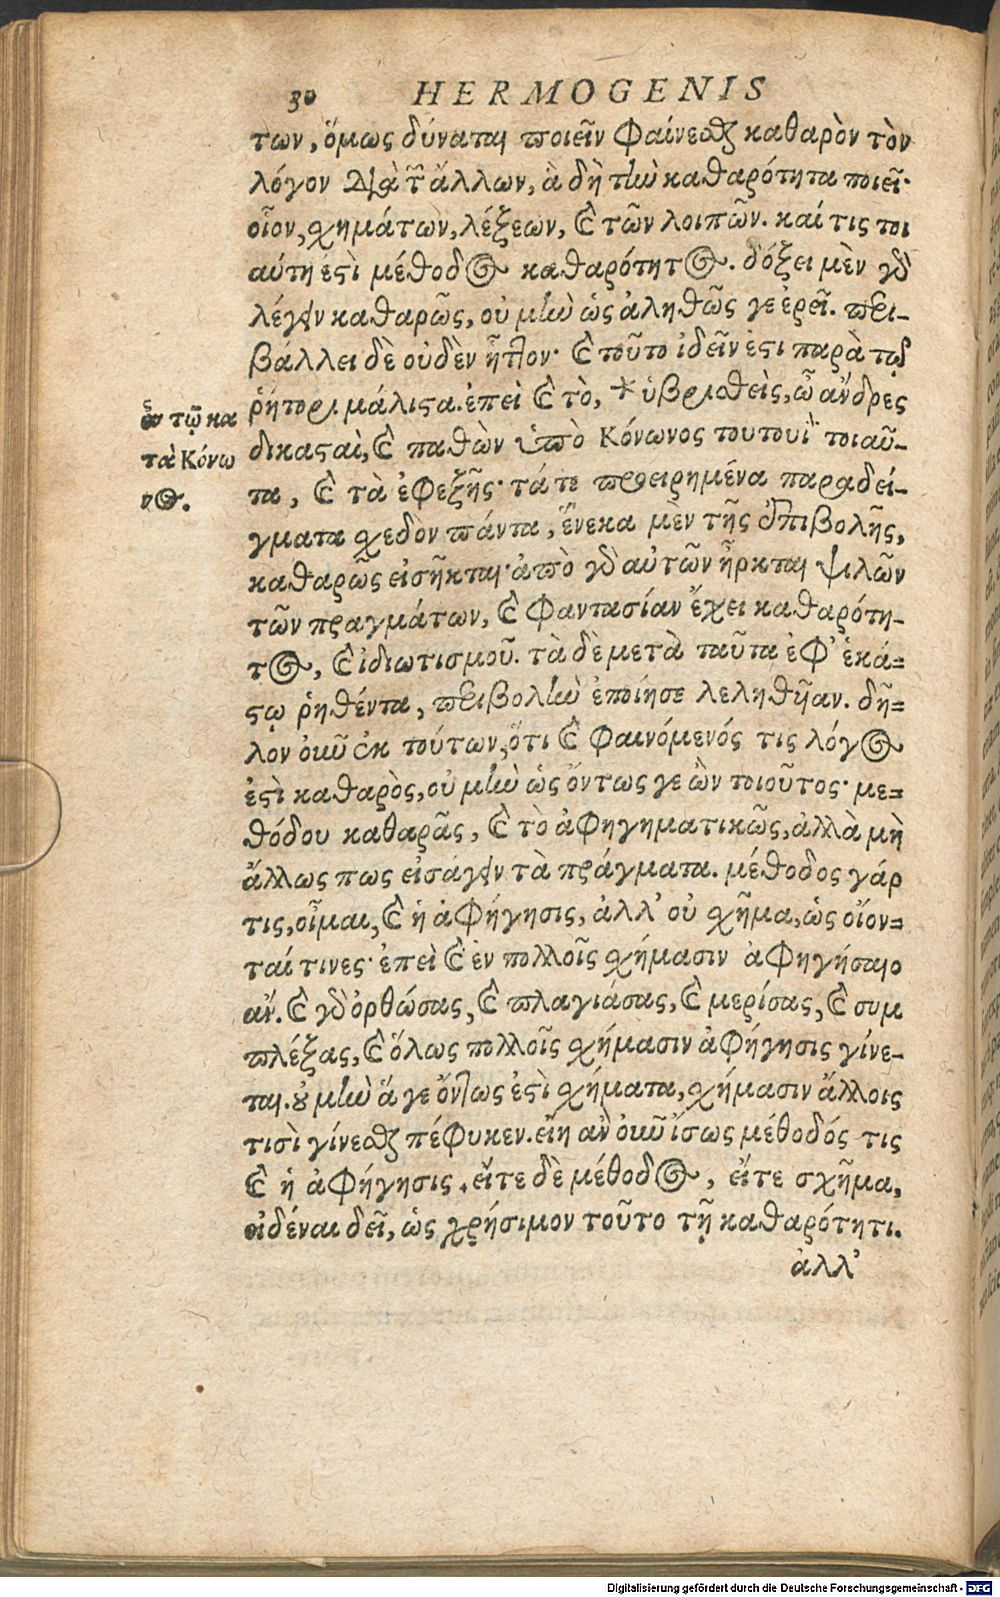 30 HERMOGENIS
των, ὅμως δύναται ποιεῖν φαίνεσθαι καθαρὸν τὸν
λόγον διὰ τῶν ἄλλων, ἃ δὴ τὴν καθαρότητα ποιεῖ·
οἷον, σχημάτων, λέξεων, καὶ τῶν λοιπῶν. καί τις τοι
αύτη ἐστὶ μέθοδος καθαρότητος. δόξει μὲν γὰρ
λέγειν καθαρῶς, οὐ μὴν ὡς ἀληθῶς γε ἐρεῖ. περι-
βάλλει δὲ οὐδὲν ἧττον· καὶ τοῦτο ἰδεῖν ἐστι παρὰ τῷ
ῥήτορι μάλιστα. ἐπεὶ καὶ τὸ, * ὑβρισθεὶς, ὦ ἄνδρες
δικασταὶ, καὶ παθὼν ὑπὸ Κόνωνος τουτουῒ τοιαῦ-
τα, καὶ τὰ ἐφεξῆς· τά τε προειρημένα παραδεί-
γματα σχεδὸν πάντα, ἕνεκα μὲν τῆς ἐπιβολῆς,
καθαρῶς εἰσῆκται· ἀπὸ γὰρ αὐτῶν ἦρκται ψιλῶν
τῶν πραγμάτων, καὶ φαντασίαν ἔχει καθαρότη-
τος, καὶ ἰδιωτισμοῦ. τὰ δὲ μετὰ ταῦτα ἐφ' ἑκά-
στῳ ῥηθέντα, περιβολὴν ἐποίησε λεληθυῖαν. δῆ-
λον οὖν ἐκ τούτων, ὅτι καὶ φαινόμενός τις λόγος
ἐστὶ καθαρὸς, οὐ μὴν ὡς ὄντως γε ὢν τοιοῦτος· με-
θόδου καθαρᾶς, καὶ τὸ ἀφηγηματικῶς, ἀλλὰ μὴ
ἄλλως πως εἰσάγειν τὰ πράγματα. μέθοδος γάρ
τις, οἶμαι, καὶ ἡ ἀφήγησις, ἀλλ' οὐ σχῆμα, ὡς οἴον-
ταί τινες· ἐπεὶ καὶ ἐν πολλοῖς σχήμασιν ἀφηγήσαιο
ἄν. καὶ γὰρ ὀρθώσας, καὶ πλαγιάσας, καὶ μερίσας, καὶ συμ
πλέξας, καὶ ὅλως πολλοῖς σχήμασιν ἀφήγησις γίνε-
ται. οὐ μὴν ἅ γε ὄντως ἐστὶ σχήματα, σχήμασιν ἄλλοις
τισὶ γίνεσθαι πέφυκεν. εἴη ἂν οὖν ἴσως μέθοδός τις
καὶ ἡ ἀφήγησις. εἴτε δὲ μέθοδος, εἴτε σχῆμα,
εἰδέναι δεῖ, ὡς χρήσιμον τοῦτο τῇ καθαρότητι.
ἀλλ'
ἐν τῷ κα
τὰ Κόνω
νος.
Digitalisierung gefördert durch die Deutsche Forschungsgemeinschaft - DFG